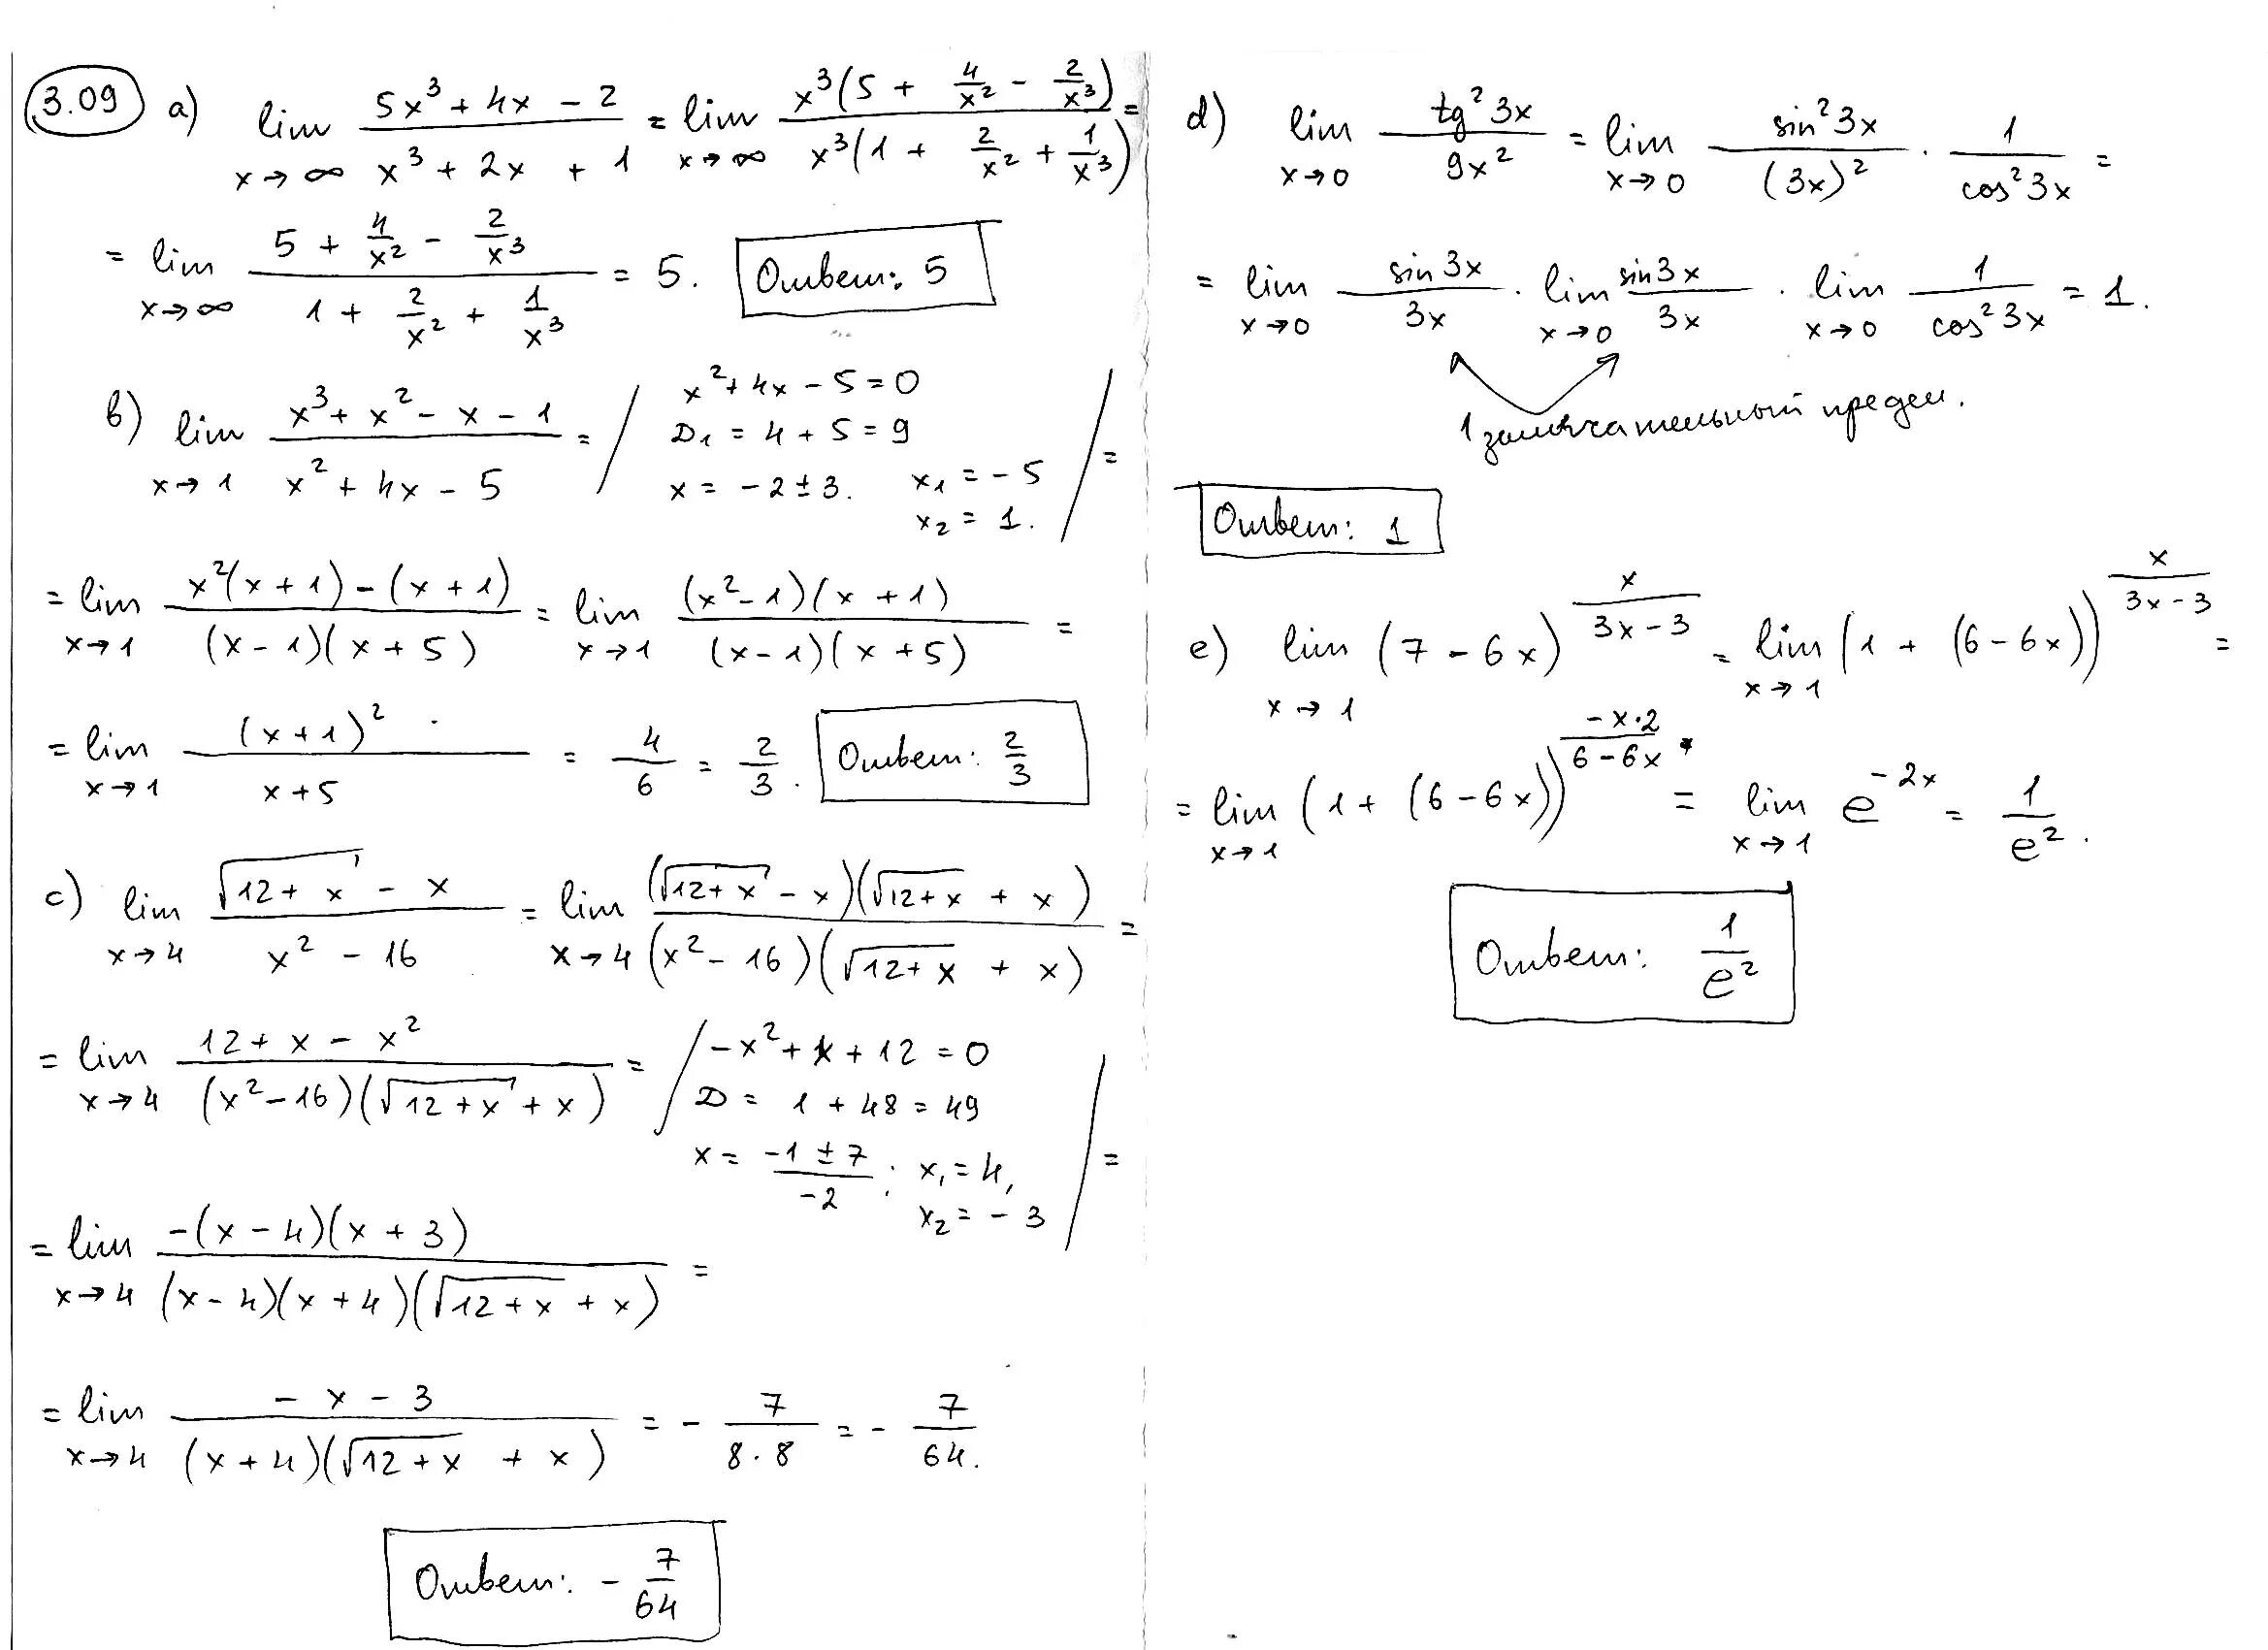 3.09 a) lim x→∞ (5x³ + 4x − 2)/(x³ + 2x + 1) = lim x→∞ x³(5 + 4/x² − 2/x³)/x³(1 + 2/x² + 1/x³) =
= lim x→∞ (5 + 4/x² − 2/x³)/(1 + 2/x² + 1/x³) = 5. Ответ: 5
b) lim x→1 (x³ + x² − x − 1)/(x² + 4x − 5) = / x² + 4x − 5 = 0
D₁ = 4 + 5 = 9
x = −2 ± 3. x₁ = −5
x₂ = 1. / =
= lim x→1 (x²(x + 1) − (x + 1))/((x − 1)(x + 5)) = lim x→1 (x² − 1)(x + 1)/((x − 1)(x + 5)) =
= lim x→1 (x + 1)²/(x + 5) = 4/6 = 2/3. Ответ: 2/3
c) lim x→4 (√(12 + x) − x)/(x² − 16) = lim x→4 (√(12 + x) − x)(√(12 + x) + x)/((x² − 16)(√(12 + x) + x)) =
= lim x→4 (12 + x − x²)/((x² − 16)(√(12 + x) + x)) = / −x² + x + 12 = 0
D = 1 + 48 = 49
x = (−1 ± 7)/−2 ; x₁ = 4,
x₂ = −3 / =
= lim x→4 −(x − 4)(x + 3)/((x − 4)(x + 4)(√(12 + x) + x)) =
= lim x→4 (−x − 3)/((x + 4)(√(12 + x) + x)) = −7/(8·8) = −7/64.
Ответ: −7/64
d) lim x→0 tg² 3x/9x² = lim x→0 sin² 3x/(3x)² · 1/cos² 3x =
= lim x→0 sin 3x/3x · lim x→0 sin 3x/3x · lim x→0 1/cos² 3x = 1.
1 замечательный предел.
Ответ: 1
e) lim x→1 (7 − 6x)^(x/(3x − 3)) = lim x→1 (1 + (6 − 6x))^(x/(3x − 3)) =
= lim x→1 (1 + (6 − 6x))^(−x·2/(6 − 6x)) = lim x→1 e^(−2x) = 1/e².
Ответ: 1/e²